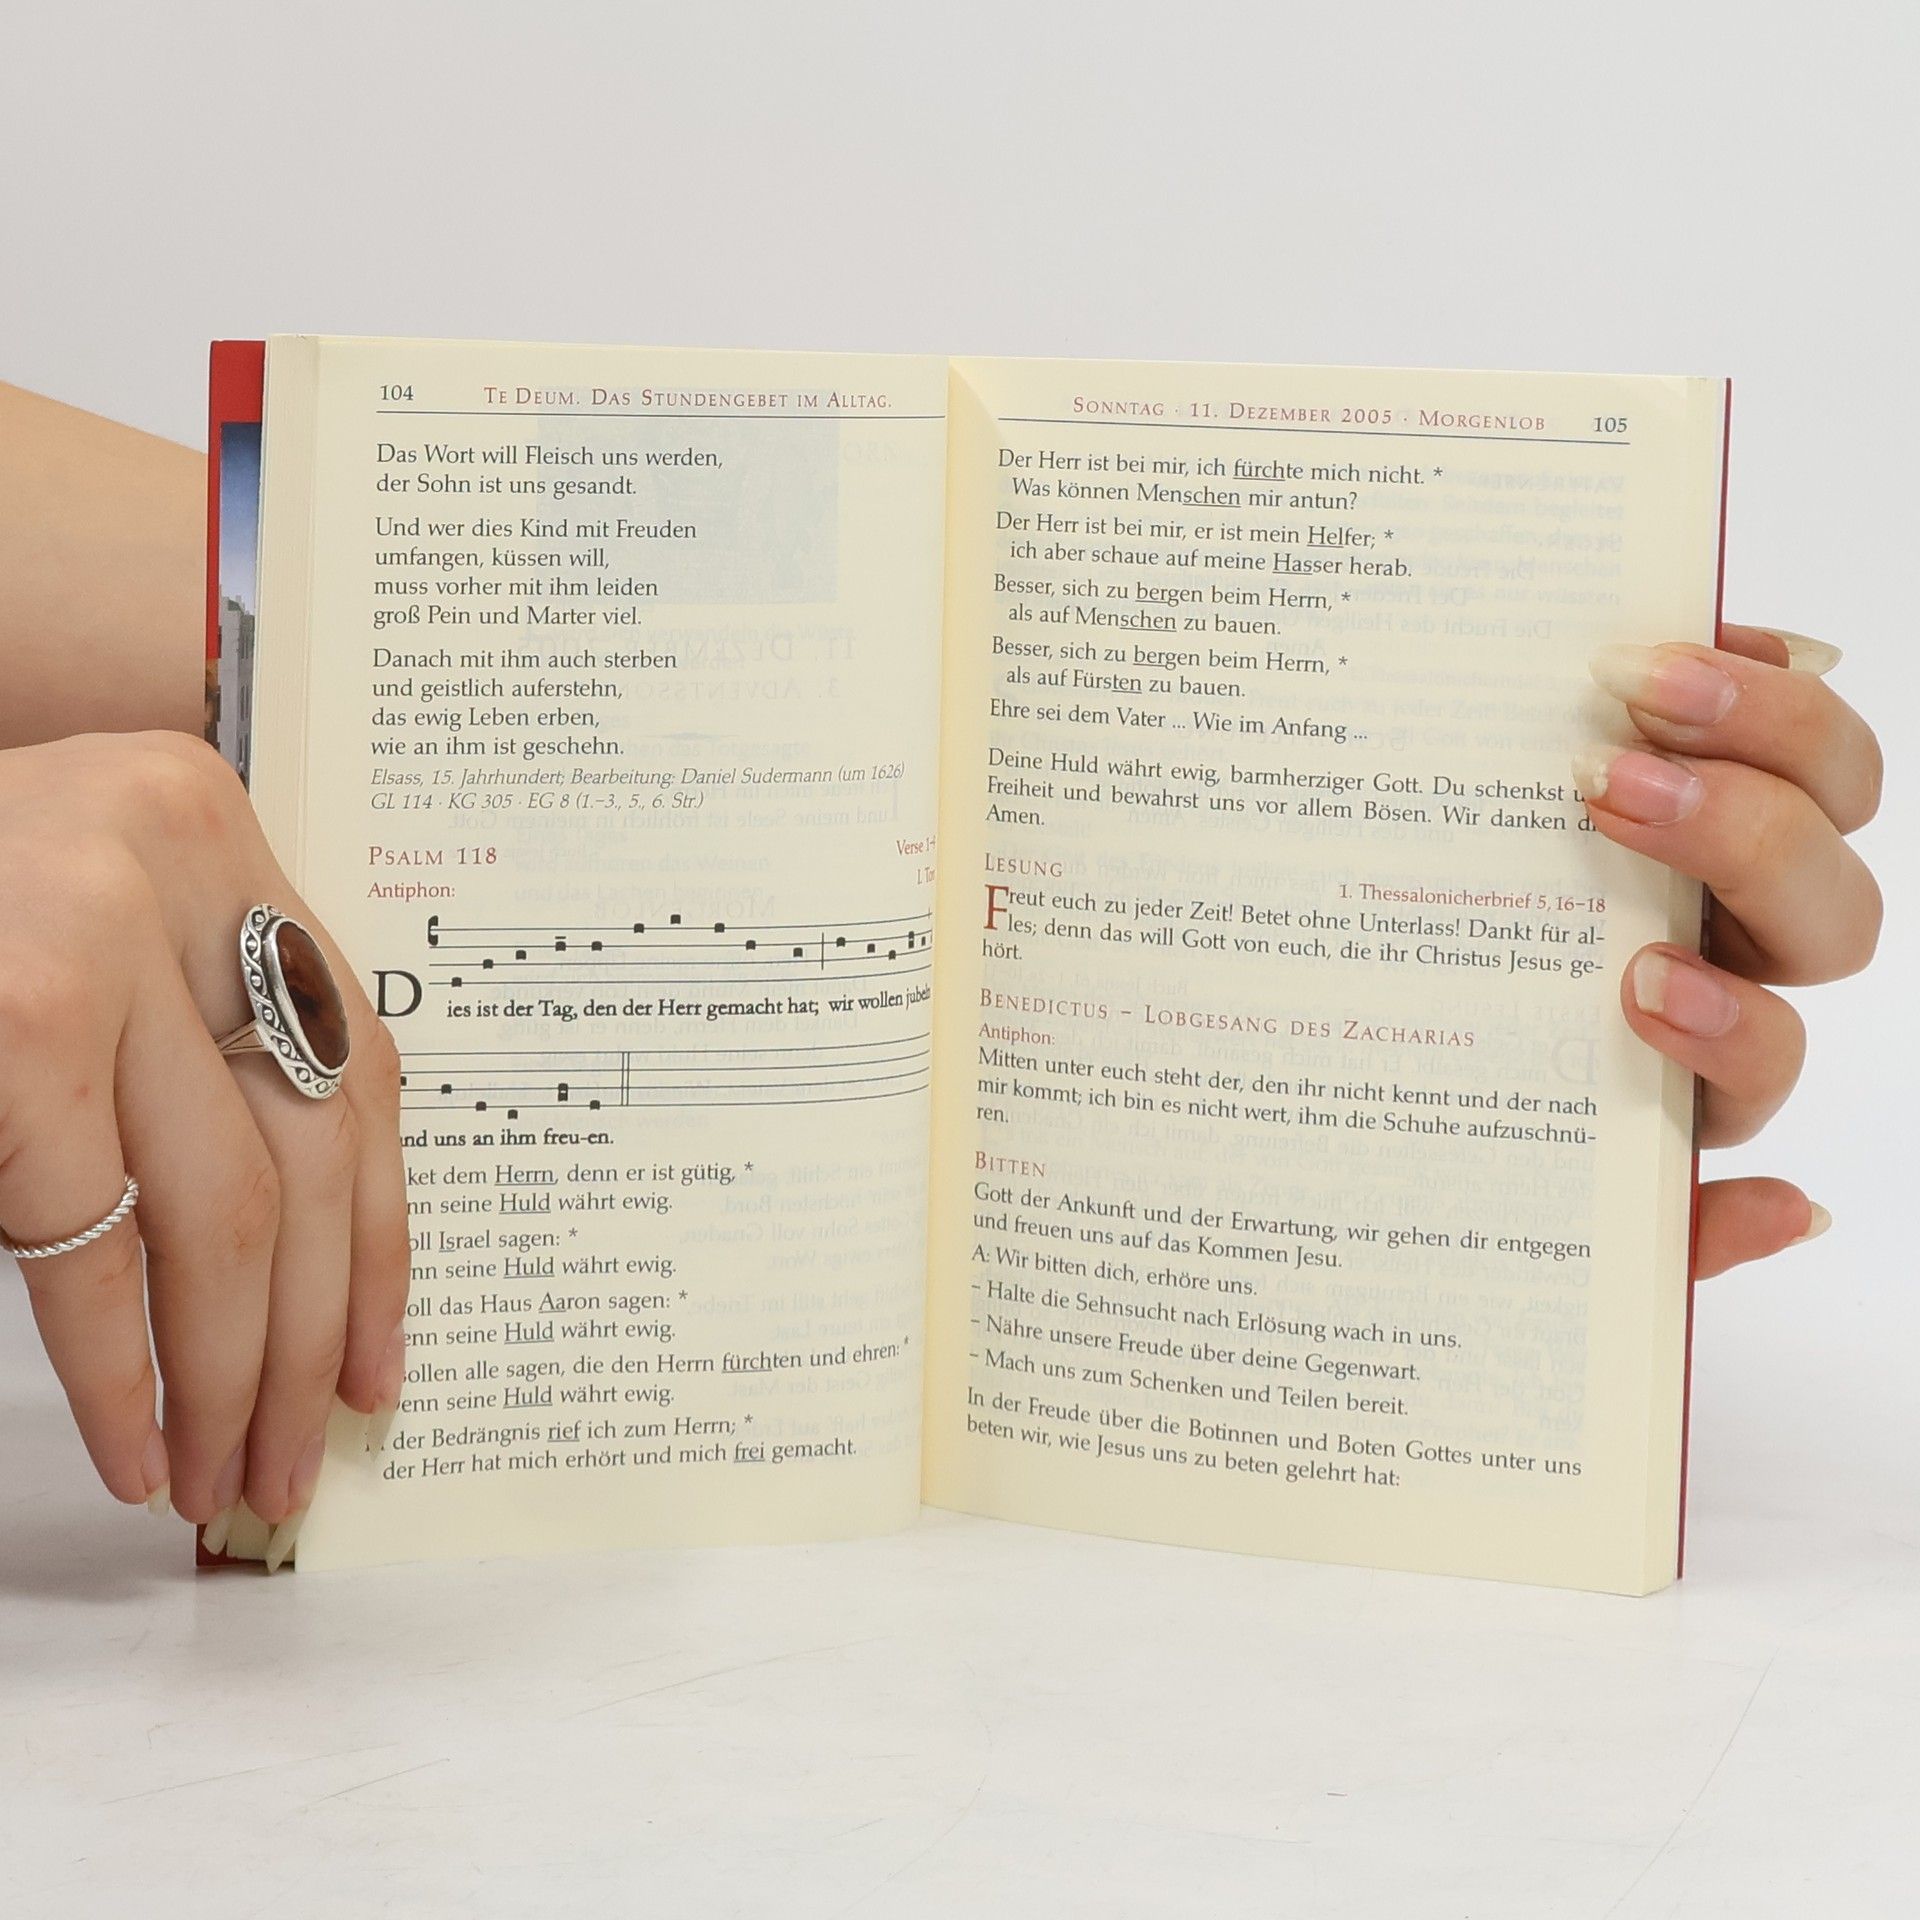 104 TE DEUM. DAS STUNDENGEBET IM ALLTAG.
Das Wort will Fleisch uns werden,
der Sohn ist uns gesandt.
Und wer dies Kind mit Freuden
umfangen, küssen will,
muss vorher mit ihm leiden
groß Pein und Marter viel.
Danach mit ihm auch sterben
und geistlich auferstehn,
das ewig Leben erben,
wie an ihm ist geschehn.
Elsass, 15. Jahrhundert; Bearbeitung: Daniel Sudermann (um 1626)
GL 114 · KG 305 · EG 8 (1.–3., 5., 6. Str.)
PSALM 118 Verse
Antiphon: I. Ton
Dies ist der Tag, den der Herr gemacht hat; wir wollen jubeln
nd uns an ihm freu-en.
ket dem Herrn, denn er ist gütig, *
nn seine Huld währt ewig.
oll Israel sagen: *
nn seine Huld währt ewig.
oll das Haus Aaron sagen: *
enn seine Huld währt ewig.
ollen alle sagen, die den Herrn fürchten und ehren: *
enn seine Huld währt ewig.
der Bedrängnis rief ich zum Herrn; *
der Herr hat mich erhört und mich frei gemacht.
SONNTAG · 11. DEZEMBER 2005 · MORGENLOB 105
Der Herr ist bei mir, ich fürchte mich nicht. *
Was können Menschen mir antun?
Der Herr ist bei mir, er ist mein Helfer; *
ich aber schaue auf meine Hasser herab.
Besser, sich zu bergen beim Herrn, *
als auf Menschen zu bauen.
Besser, sich zu bergen beim Herrn, *
als auf Fürsten zu bauen.
Ehre sei dem Vater ... Wie im Anfang ...
Deine Huld währt ewig, barmherziger Gott. Du schenkst
Freiheit und bewahrst uns vor allem Bösen. Wir danken
Amen.
LESUNG
1. Thessalonicherbrief 5, 16–18
Freut euch zu jeder Zeit! Betet ohne Unterlass! Dankt für al-
les; denn das will Gott von euch, die ihr Christus Jesus ge-
hört.
BENEDICTUS – LOBGESANG DES ZACHARIAS
Antiphon:
Mitten unter euch steht der, den ihr nicht kennt und der nach
mir kommt; ich bin es nicht wert, ihm die Schuhe aufzuschnü-
ren.
BITTEN
Gott der Ankunft und der Erwartung, wir gehen dir entgegen
und freuen uns auf das Kommen Jesu.
A: Wir bitten dich, erhöre uns.
– Halte die Sehnsucht nach Erlösung wach in uns.
– Nähre unsere Freude über deine Gegenwart.
– Mach uns zum Schenken und Teilen bereit.
In der Freude über die Botinnen und Boten Gottes unter uns
beten wir, wie Jesus uns zu beten gelehrt hat: